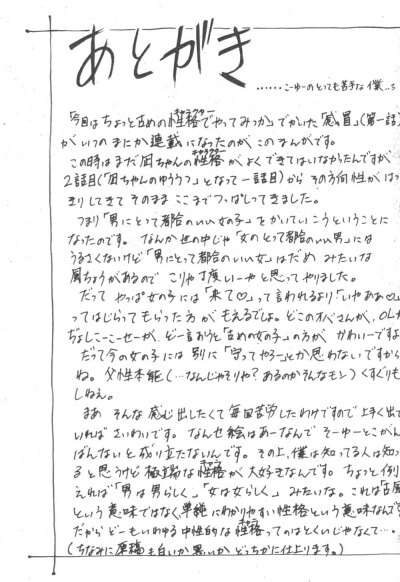 あとがき
……こーゆーのとっても苦手な僕…
「今日はちょっと古めの性格でやってみっか」でかいた「感冒」(第一話)
キャラクター
がいつのまにか連載になったのがこのまんがです。
この時はまだ凪ちゃんの性格がよくできてはいなかったんですが
キャラクター
2話目(「凪ちゃんのゆううつ」となって一話目)からその方向性がはっ
きりしてきてそのままここまでつっぱしてきました。
つまり「男にとって都合のいい女の子」をかいていこうということに
なったのです。なんか世の中じゃ「女のとって都合のいい男」には
うるさくないけど「男にとって都合のいい女」はだめみたいな
風ちょうがあるのでこりゃ丁度いーやと思ってやりました。
だってやっぱ女の子には「来て♡」って言われるより「いやああ♡」
ってはじらってもらった方がもえるでしょ。どこのオバさんが、OLが
ぢょしこーこーせーが、どー言おうと「古めの女の子」の方がかわいーですよ
だって今の女の子には別に「守ってやろー」とか思わないですから
ね。父性本能(…なんじゃそりゃ?あるのかそんなモン)くすぐりも
しねぇ。
まあそんな感じ出したくて毎回苦労したわけですので上手く出て
いればさいわいです。なんせ絵はあーなんでそーゆーとこがん
ばんないと成り立たないんです。その上、僕は知ってる人は知っ
ると思うけど極端な性格が大好きなんです。ちょっと例
えれば「男は男らしく」「女は女らしく」みたいな。これは古風
という意味ではなく、単純にわかりやすい性格という意味なんです
だからどーもいわゆる中性的な性格ってのはとくいじゃなくて…。
(ちなみに原稿も白いか黒いかどっちかに仕上ります。)